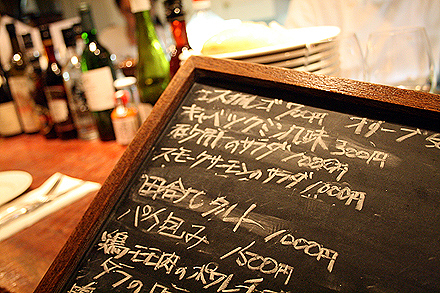 エスカルゴ 700円 オリーブ
キャベツ 300円
砂肝のサラダ 1000円
スモークサーモンのサラダ 1000円
田舎 タルト 1000円
パイ包み 1500円
鶏モモ肉のポワレ
タラのロ